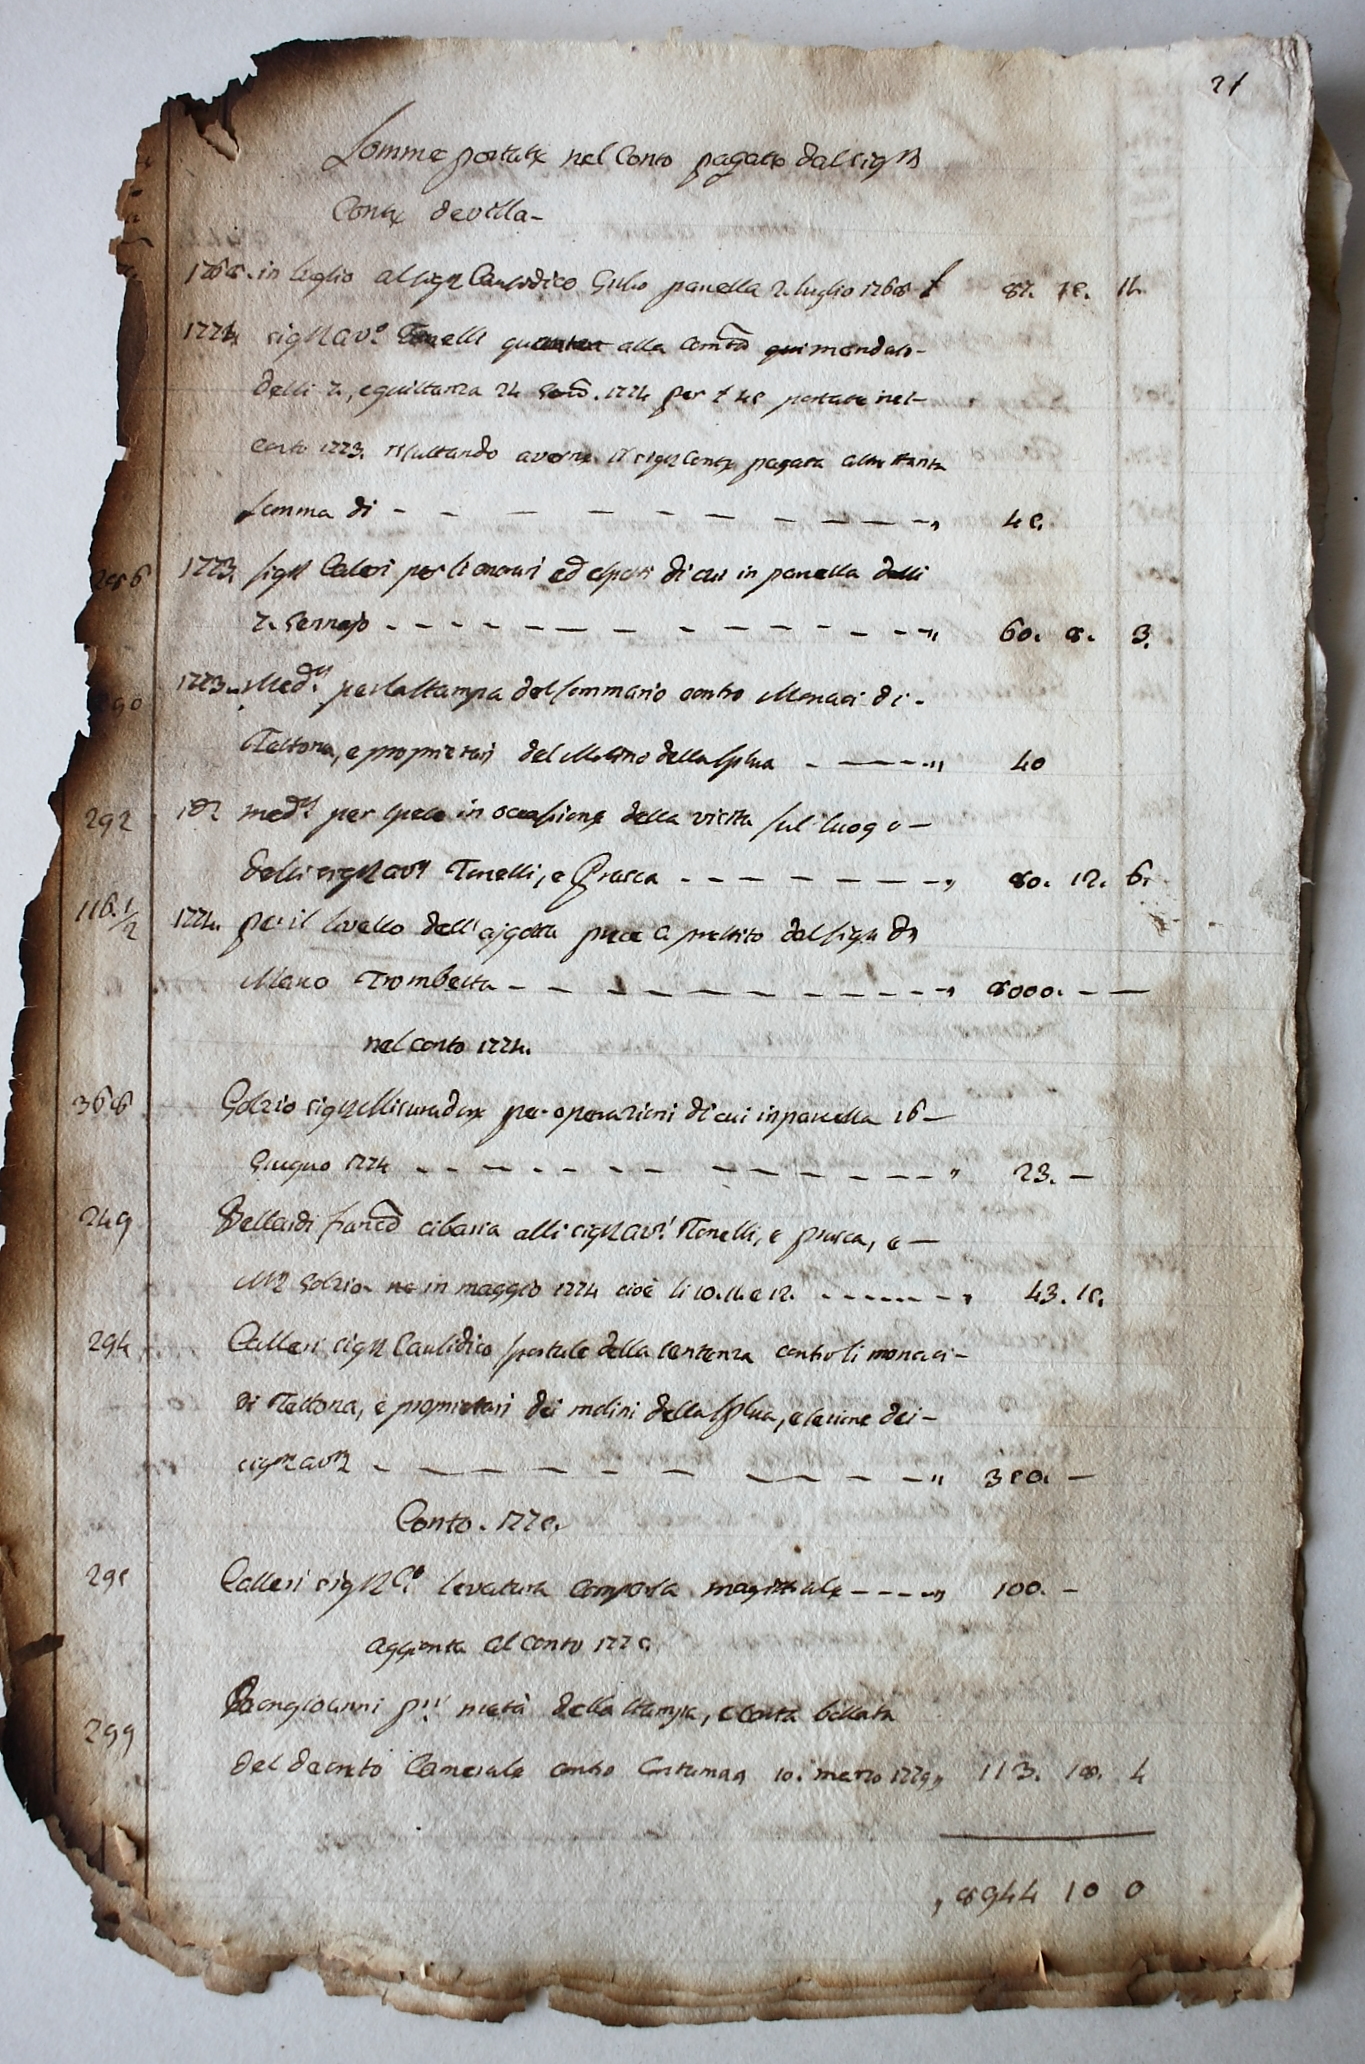 21
Somme portate nel Conto pagato dal sigr
Conte de villa -
1768. in luglio al sigr Causidico Giulio parcella 2. luglio 1768 £ 87. 15. 11.
1774 sigr avo. Tonelli alla mandato -
delli 7, e quittanza 24 1774 per £ 45 portate nel -
conto 1773. risultando averne il sigr Conte pagata altrettanta
somma di - - - - - - - - - - - „ 45.
286 1773. sigr Caleri per li onorari ed esposti di cui in parcella delli
7. Gennajo - - - - - - - - - - - „ 60. 8. 3.
90 1773. Medo. per la stampa del sommario contro Monaci di -
Testona, e proprietari del Molino della Splua - - - „ 40
292 1d medo per spese in occasione della visita sul luogo -
delli sigri avi Tonelli, e Prasca - - - - - - - - „ 80. 12. 6.
116. 1/2 1774. per il livello dell' prese a prestito dal sigr
Marco Trombetta - - - - - - - - - - „ 8000. - -
nel conto 1774.
368 Golzio sigr Misuradore per operazioni di cui in parcella 16 -
Giugno 1774 - - - - - - - - - - „ 23. -
249 Bellardi franco cibaria alli sigri avi. Tonelli, e prasca, e -
Mr Golzio in maggio 1774 cioè li 10. 11. e 12. - - - - - „ 43. 15.
294 Calleri sigr Causidico sportule della sentenza contro li monaci -
di Testona, e proprietari dei molini della Splua, e dei -
sigri avri - - - - - - - - - - „ 350. -
Conto. 1775.
295 Calleri sigr Co. levatura comparsa magistrale - - - - „ 100. -
aggionta al conto 1775
299 Bongioanni metà della stampa, e carta bollata
del decreto Camerale contro 10. marzo 1779 „ 113. 18. 4
„ 8944 10 0